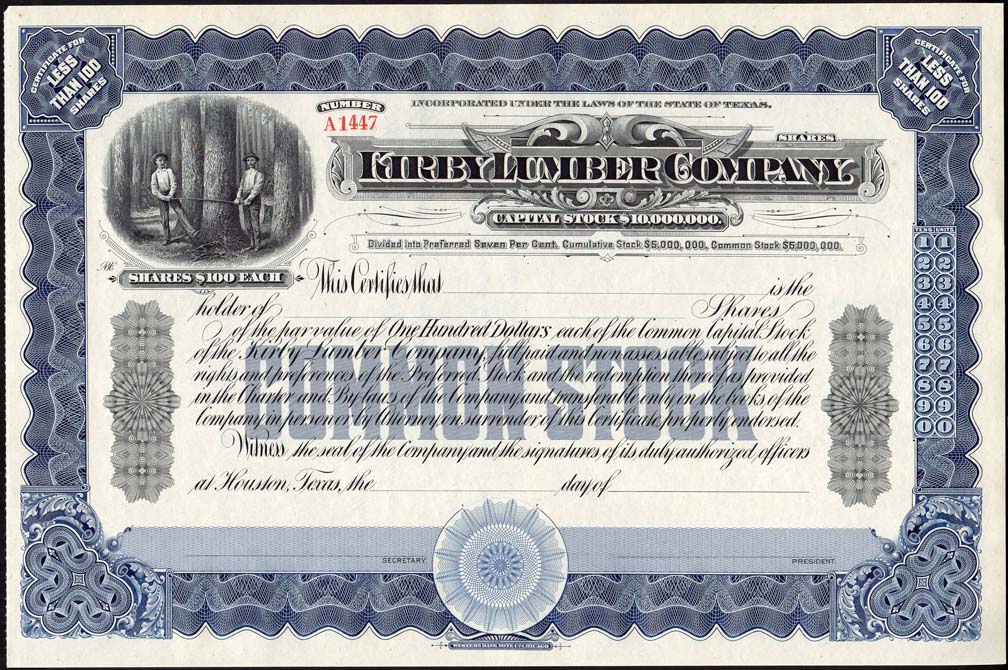 CERTIFICATE FOR
LESS
THAN 100
SHARES
CERTIFICATE FOR
LESS
THAN 100
SHARES
NUMBER
A1447
INCORPORATED UNDER THE LAWS OF THE STATE OF TEXAS.
SHARES
KIRBY LUMBER COMPANY.
CAPITAL STOCK $10,000,000.
Divided into Preferred Seven Per Cent. Cumulative Stock $5,000,000, Common Stock $5,000,000.
TENS UNITS
1 1
2 2
3 3
4 4
5 5
6 6
7 7
8 8
9 9
0 0
SHARES $100 EACH
This Certifies that is the
holder of Shares
of the par value of One Hundred Dollars, each of the Common Capital Stock
of the Kirby Lumber Company, full paid and non assessable subject to all the
rights and preferences of the Preferred Stock and the redemption thereof as provided
in the Charter and By-laws of the Company and transferable only on the books of the
Company in person or by Attorney on surrender of this Certificate properly endorsed.
COMMON STOCK
Witness the seal of the Company and the signatures of its duly authorized officers
at Houston, Texas, the day of
SECRETARY.
PRESIDENT.
WESTERN BANK NOTE CO. CHICAGO